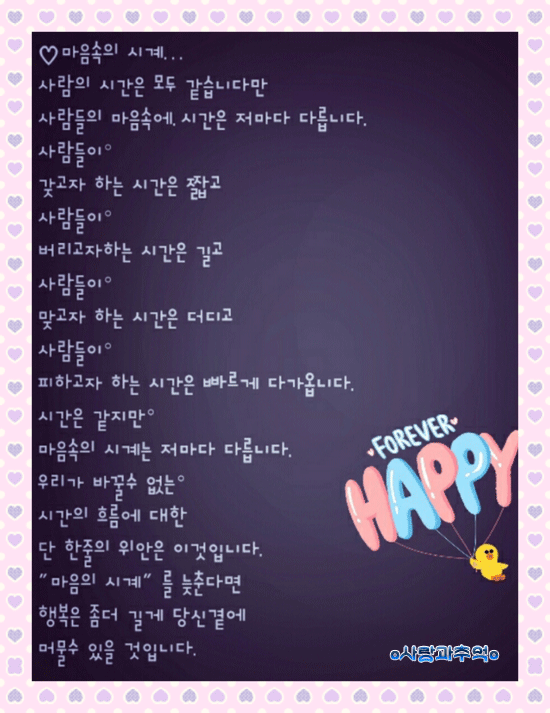 ♡마음속의 시계...
사람의 시간은 모두 같습니다만
사람들의 마음속에. 시간은 저마다 다릅니다.
사람들이°
갖고자 하는 시간은 짧고
사람들이°
버리고자하는 시간은 길고
사람들이°
맞고자 하는 시간은 더디고
사람들이°
피하고자 하는 시간은 빠르게 다가옵니다.
시간은 같지만°
마음속의 시계는 저마다 다릅니다.
우리가 바꿀수 없는°
시간의 흐름에 대한
단 한줄의 위안은 이것입니다.
"마음의 시계" 를 늦춘다면
행복은 좀더 길게 당신곁에
머물수 있을 것입니다.
FOREVER
HAPPY
o사랑과추억o